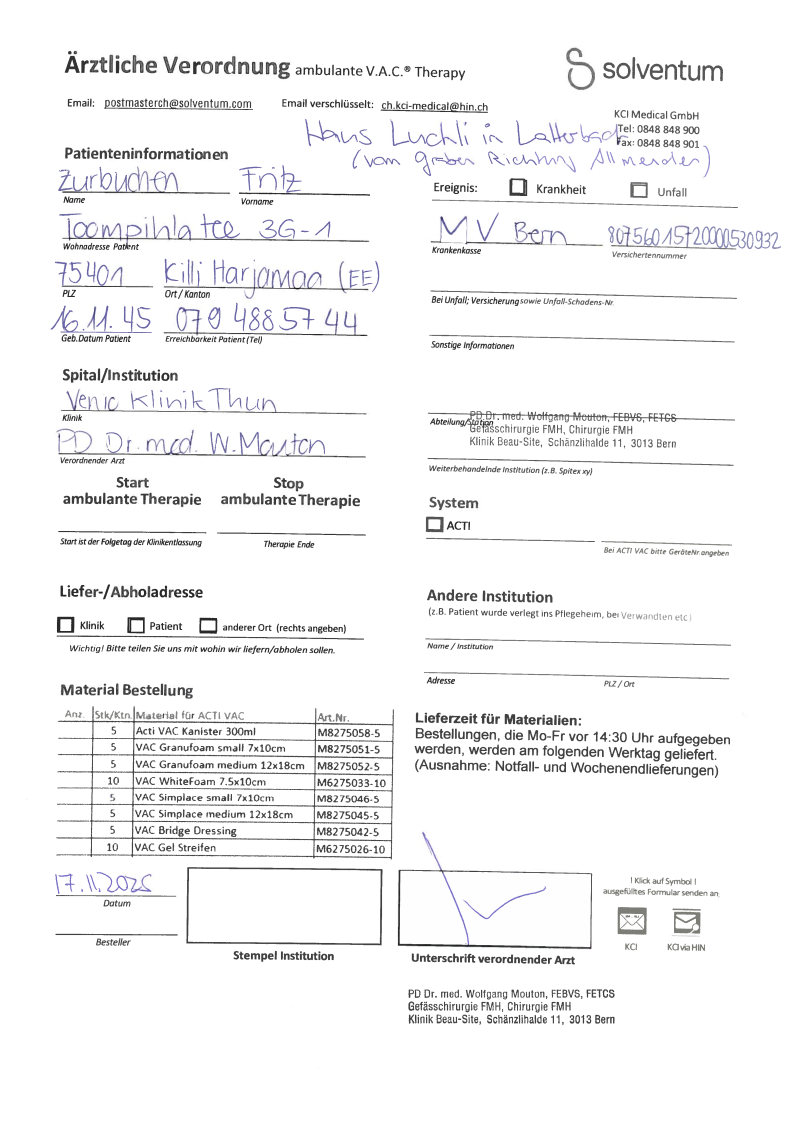 Ärztliche Verordnung ambulante V.A.C.® Therapy
solventum
Email: postmasterch@solventum.com Email verschlüsselt: ch.kci-medical@hin.ch
KCI Medical GmbH
Tel: 0848 848 900
Fax: 0848 848 901
Haus Luchli in Latterbach
(vom graben Richtung Allmenden)
Patienteninformationen
Zurbuchen Fritz
Name Vorname
Ereignis: Krankheit Unfall
Toompihla tee 3G-1
Wohnadresse Patient
MV Bern 80756015720000530932
Krankenkasse Versichertennummer
75401 Killi Harjamaa (EE)
PLZ Ort / Kanton
Bei Unfall; Versicherung sowie Unfall-Schadens-Nr
16.11.45 079 488 57 44
Geb.Datum Patient Erreichbarkeit Patient (Tel)
Sonstige Informationen
Spital/Institution
Venic Klinik Thun
Klinik
Abteilung/Station
PD Dr. med. Wolfgang Mouton, FEBVS, FETCS
Gefässchirurgie FMH, Chirurgie FMH
Klinik Beau-Site, Schänzlihalde 11, 3013 Bern
PD Dr. med. W. Mouton
Verordnender Arzt
Weiterbehandelnde Institution (z.B. Spitex xy)
Start ambulante Therapie
Stop ambulante Therapie
Start ist der Folgetag der Klinikentlassung Therapie Ende
System
ACTI
Bei ACTI VAC bitte GeräteNr. angeben
Liefer-/Abholadresse
Klinik Patient anderer Ort (rechts angeben)
Wichtig! Bitte teilen Sie uns mit wohin wir liefern/abholen sollen.
Andere Institution
(z.B. Patient wurde verlegt ins Pflegeheim, bei Verwandten etc)
Name / Institution
Adresse PLZ / Ort
Material Bestellung
Anz. Stk/Ktn. Material für ACTI VAC Art.Nr.
5 Acti VAC Kanister 300ml M8275058-5
5 VAC Granufoam small 7x10cm M8275051-5
5 VAC Granufoam medium 12x18cm M8275052-5
10 VAC WhiteFoam 7.5x10cm M6275033-10
5 VAC Simplace small 7x10cm M8275046-5
5 VAC Simplace medium 12x18cm M8275045-5
5 VAC Bridge Dressing M8275042-5
10 VAC Gel Streifen M6275026-10
Lieferzeit für Materialien:
Bestellungen, die Mo-Fr vor 14:30 Uhr aufgegeben
werden, werden am folgenden Werktag geliefert.
(Ausnahme: Notfall- und Wochenendlieferungen)
17.11.2025
Datum
Besteller
Stempel Institution
Unterschrift verordnender Arzt
! Klick auf Symbol !
ausgefülltes Formular senden an:
KCI KCI via HIN
PD Dr. med. Wolfgang Mouton, FEBVS, FETCS
Gefässchirurgie FMH, Chirurgie FMH
Klinik Beau-Site, Schänzlihalde 11, 3013 Bern